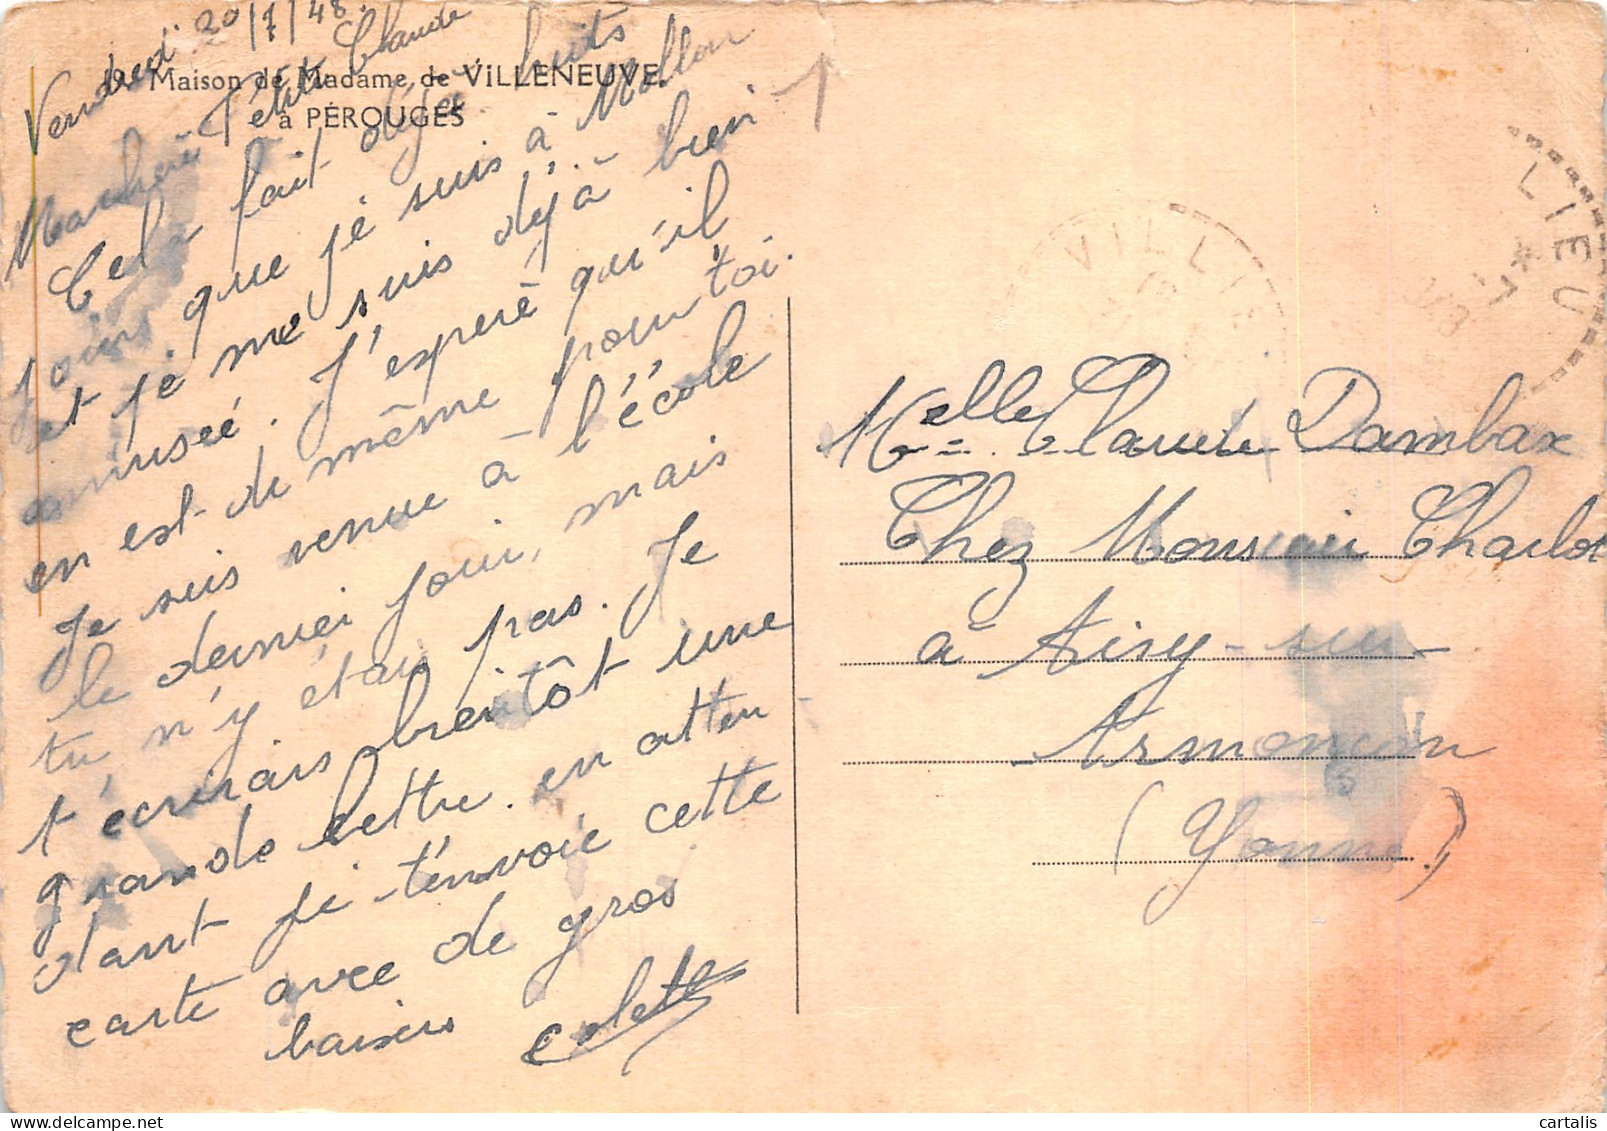 Vendredi 20/7/48.
Maison de Madame de ViLLENEUVE
à PÉROUGES
Ma chère Petite Claude
Cela fait déja huits
jours que je suis à Mollon
et je me suis déjà bien
amusée. J'éspere qu'il
en est de même pour toi.
Je suis venue à l'école
le dernier jour, mais
tu n'y étais pas. Je
t'écrirais bientôt une
grande lettre. en atten-
dant je t'envoie cette
carte avec de gros
baisers Colette
VILLIE
LIEU
Melle Claude Dambax
Chez Monsieur Charlot
à Aisy-sur-
Armançon
(Yonne)
delcampe.net
cartalis